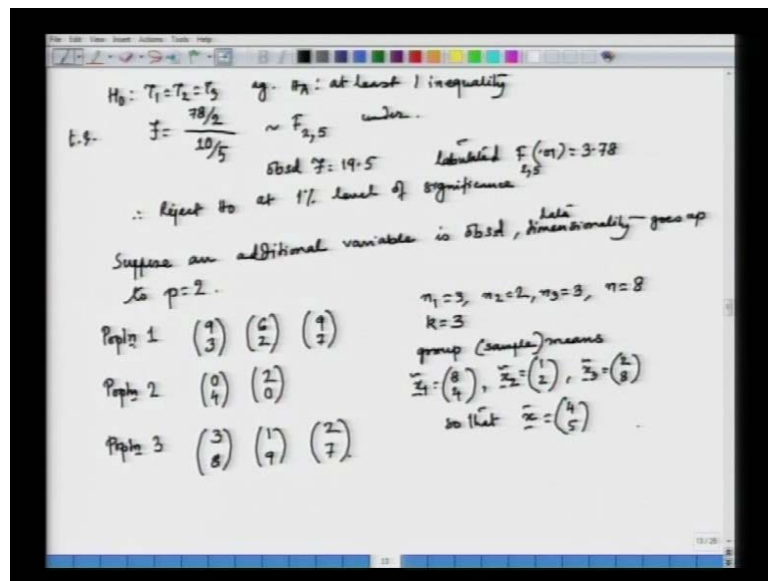 File Edit View Insert Actions Tools Help
H₀: τ₁=τ₂=τ₃ ag. H_A: at least 1 inequality
t.s. F = (78/2)/(10/5) ~ F₂,₅ under
obsd F = 19.5 tabulated F₂,₅(.01) = 3.78
∴ Reject H₀ at 1% level of significance
Suppose an additional variable is obsd, data dimensionality goes up
to p=2.
n₁=3, n₂=2, n₃=3, n=8
k=3
group (sample) means
x̄₁=(8 4), x̄₂=(1 2), x̄₃=(2 8)
so that x̄=(4 5)
Popln 1 (9 3) (6 2) (9 7)
Popln 2 (0 4) (2 0)
Popln 3 (3 8) (1 9) (2 7).
13/26